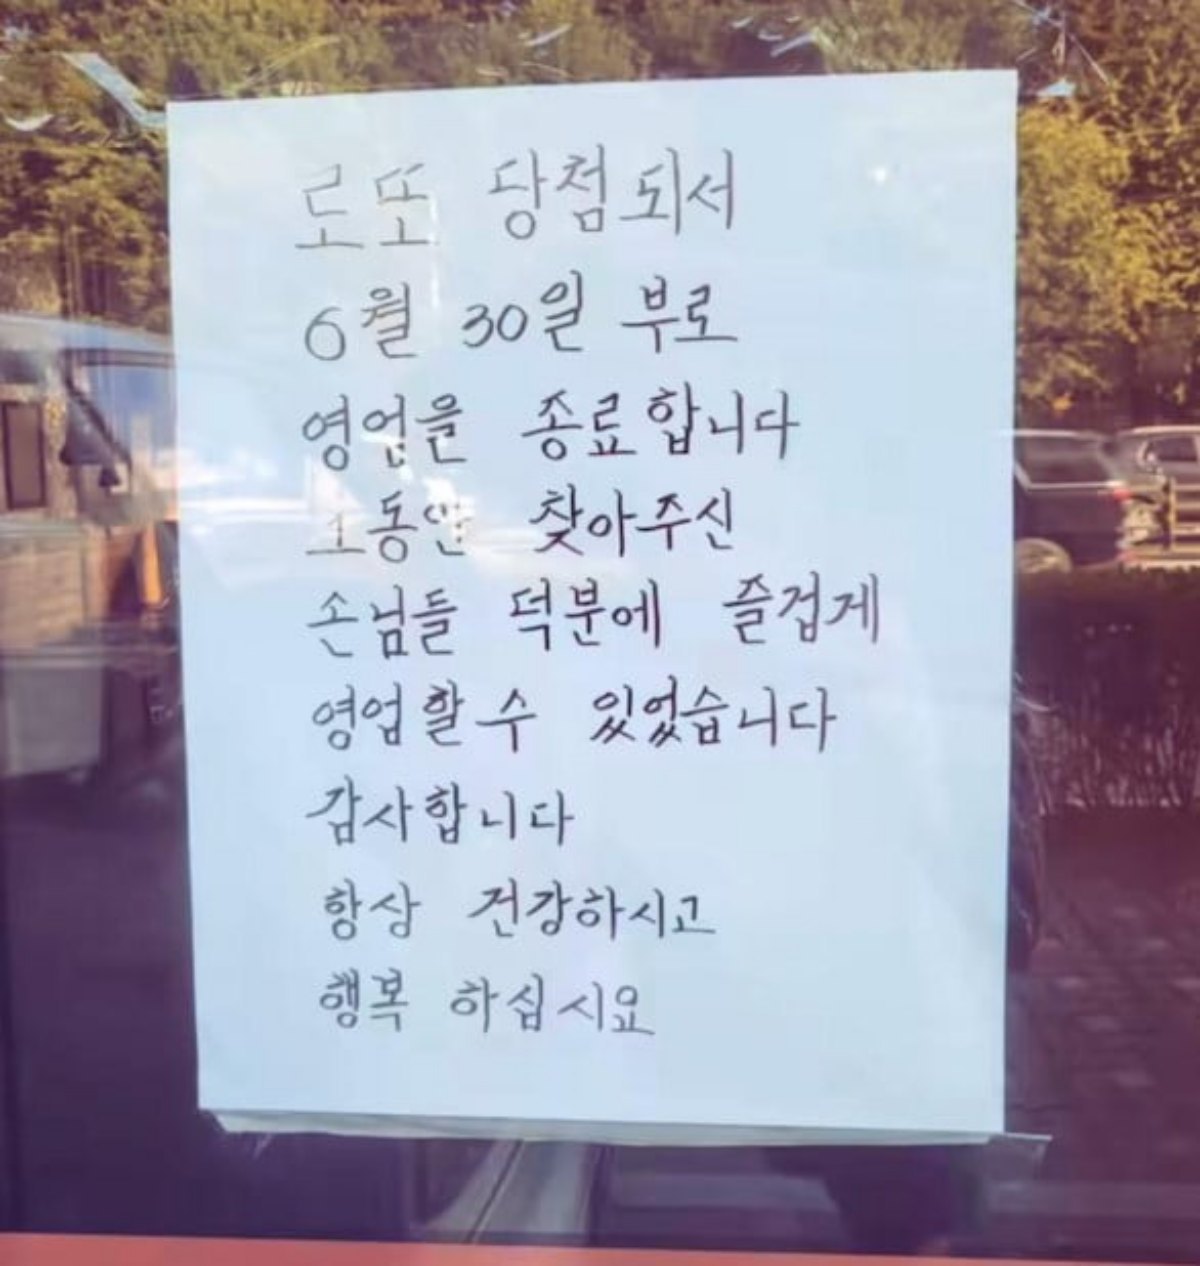 로또 당첨되서
6월 30일 부로
영업을 종료합니다
그동안 찾아주신
손님들 덕분에 즐겁게
영업할 수 있었습니다
감사합니다
항상 건강하시고
행복 하십시요